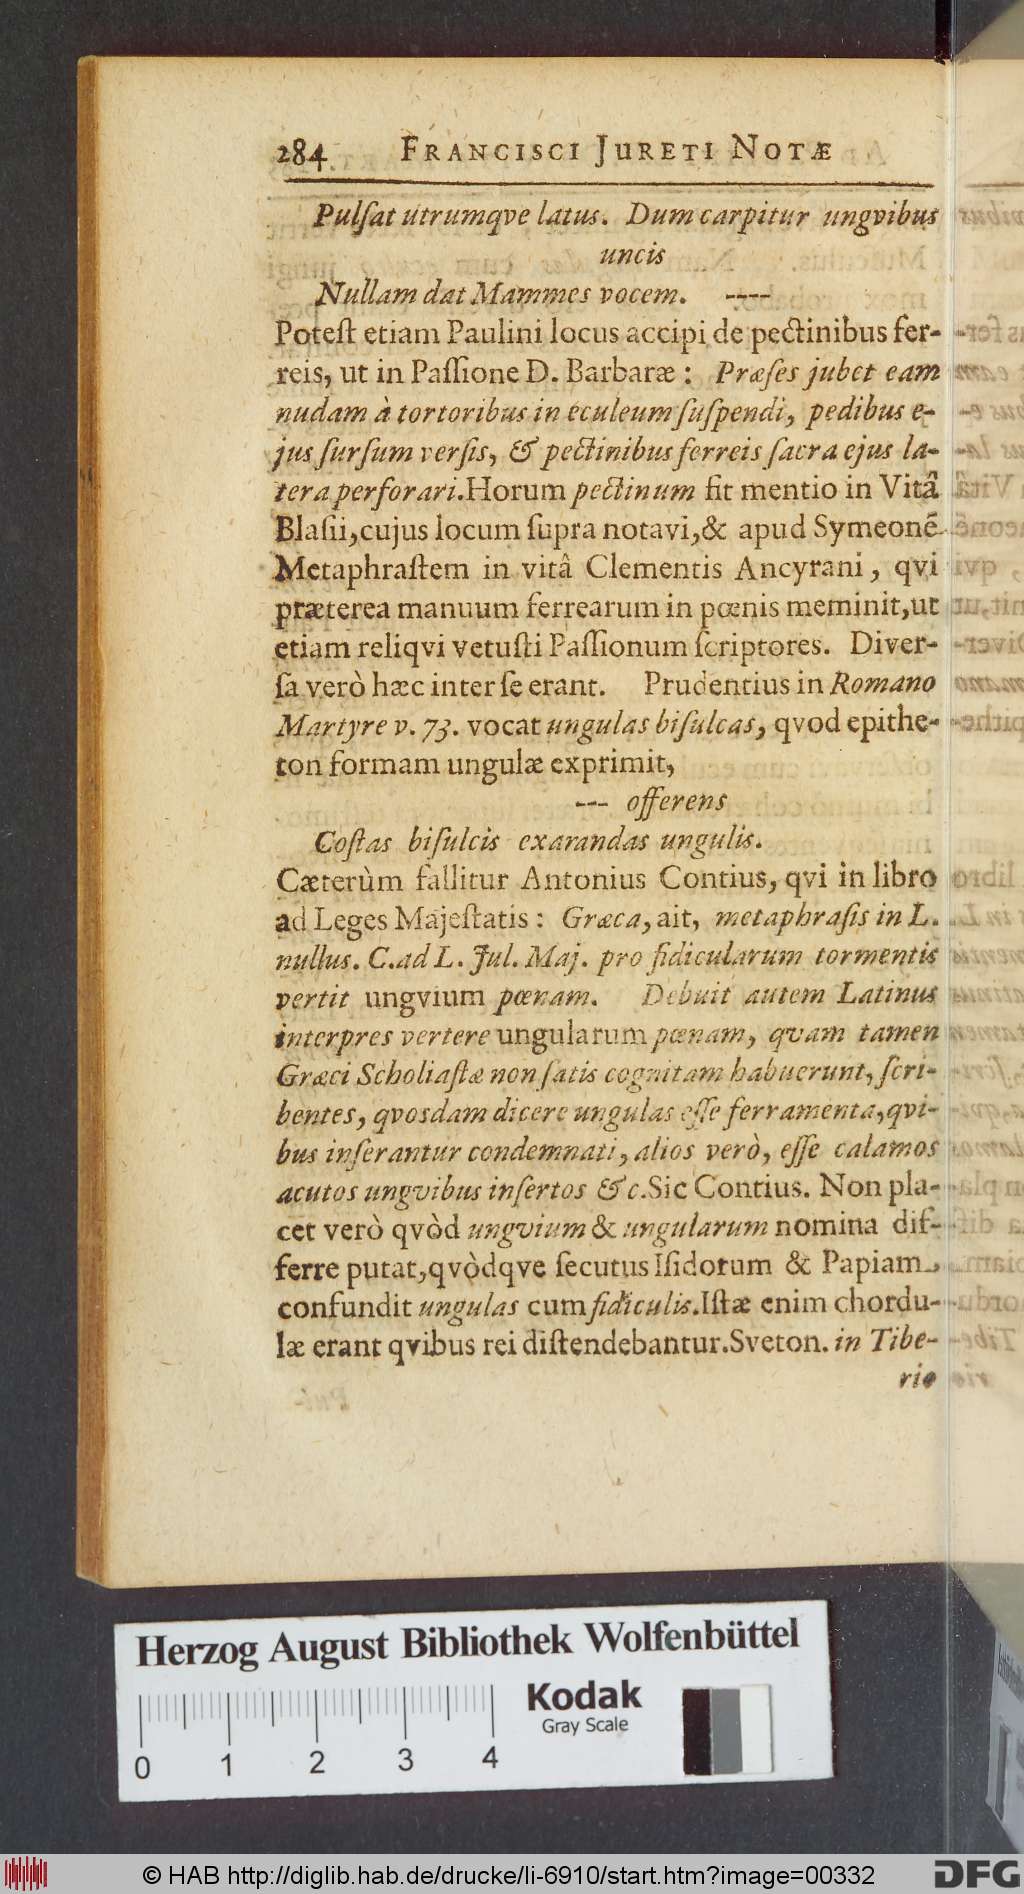 284 FRANCISCI JURETI NOTÆ
Pulſat utrumqve latus. Dum carpitur ungvibus
uncis
Nullam dat Mammes vocem. ----
Poteſt etiam Paulini locus accipi de pectinibus fer-
reis, ut in Paſſione D. Barbaræ: Præſes jubet eam
nudam à tortoribus in eculeum ſuſpendi, pedibus e-
jus ſurſum verſis, & pectinibus ferreis ſacra ejus la-
tera perforari. Horum pectinum fit mentio in Vitâ
Blaſii, cujus locum ſupra notavi, & apud Symeonē
Metaphraſtem in vitâ Clementis Ancyrani, qvi
præterea manuum ferrearum in pœnis meminit, ut
etiam reliqvi vetuſti Paſſionum ſcriptores. Diver-
ſa verò hæc inter ſe erant. Prudentius in Romano
Martyre v. 73. vocat ungulas biſulcas, qvod epithe-
ton formam ungulæ exprimit,
--- offerens
Coſtas biſulcis exarandas ungulis.
Cæterùm fallitur Antonius Contius, qvi in libro
ad Leges Majeſtatis: Græca, ait, metaphraſis in L.
nullus. C. ad L. Jul. Maj. pro fidicularum tormentis
vertit ungvium pœnam. Debuit autem Latinus
interpres vertere ungularum pœnam, qvam tamen
Græci Scholiaſtæ non ſatis cognitam habuerunt, ſcri-
bentes, qvosdam dicere ungulas eſſe ferramenta, qvi-
bus inſerantur condemnati, alios verò, eſſe calamos
acutos ungvibus inſertos &c. Sic Contius. Non pla-
cet verò qvòd ungvium & ungularum nomina dif-
ferre putat, qvòdqve ſecutus Iſidorum & Papiam,
confundit ungulas cum fidiculis. Iſtæ enim chordu-
læ erant qvibus rei diſtendebantur. Sveton. in Tibe-
rio
Herzog August Bibliothek Wolfenbüttel
Kodak
Gray Scale
0 1 2 3 4
© HAB http://diglib.hab.de/drucke/li-6910/start.htm?image=00332
DFG